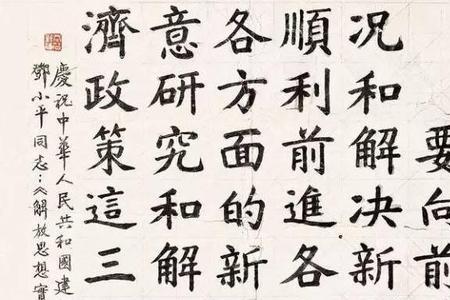 要向前
况和解决新
順利前進各
各方面的新
意研究和解
濟政策這三
慶祝中華人民共和國建
鄧小平同志:《解放思想實